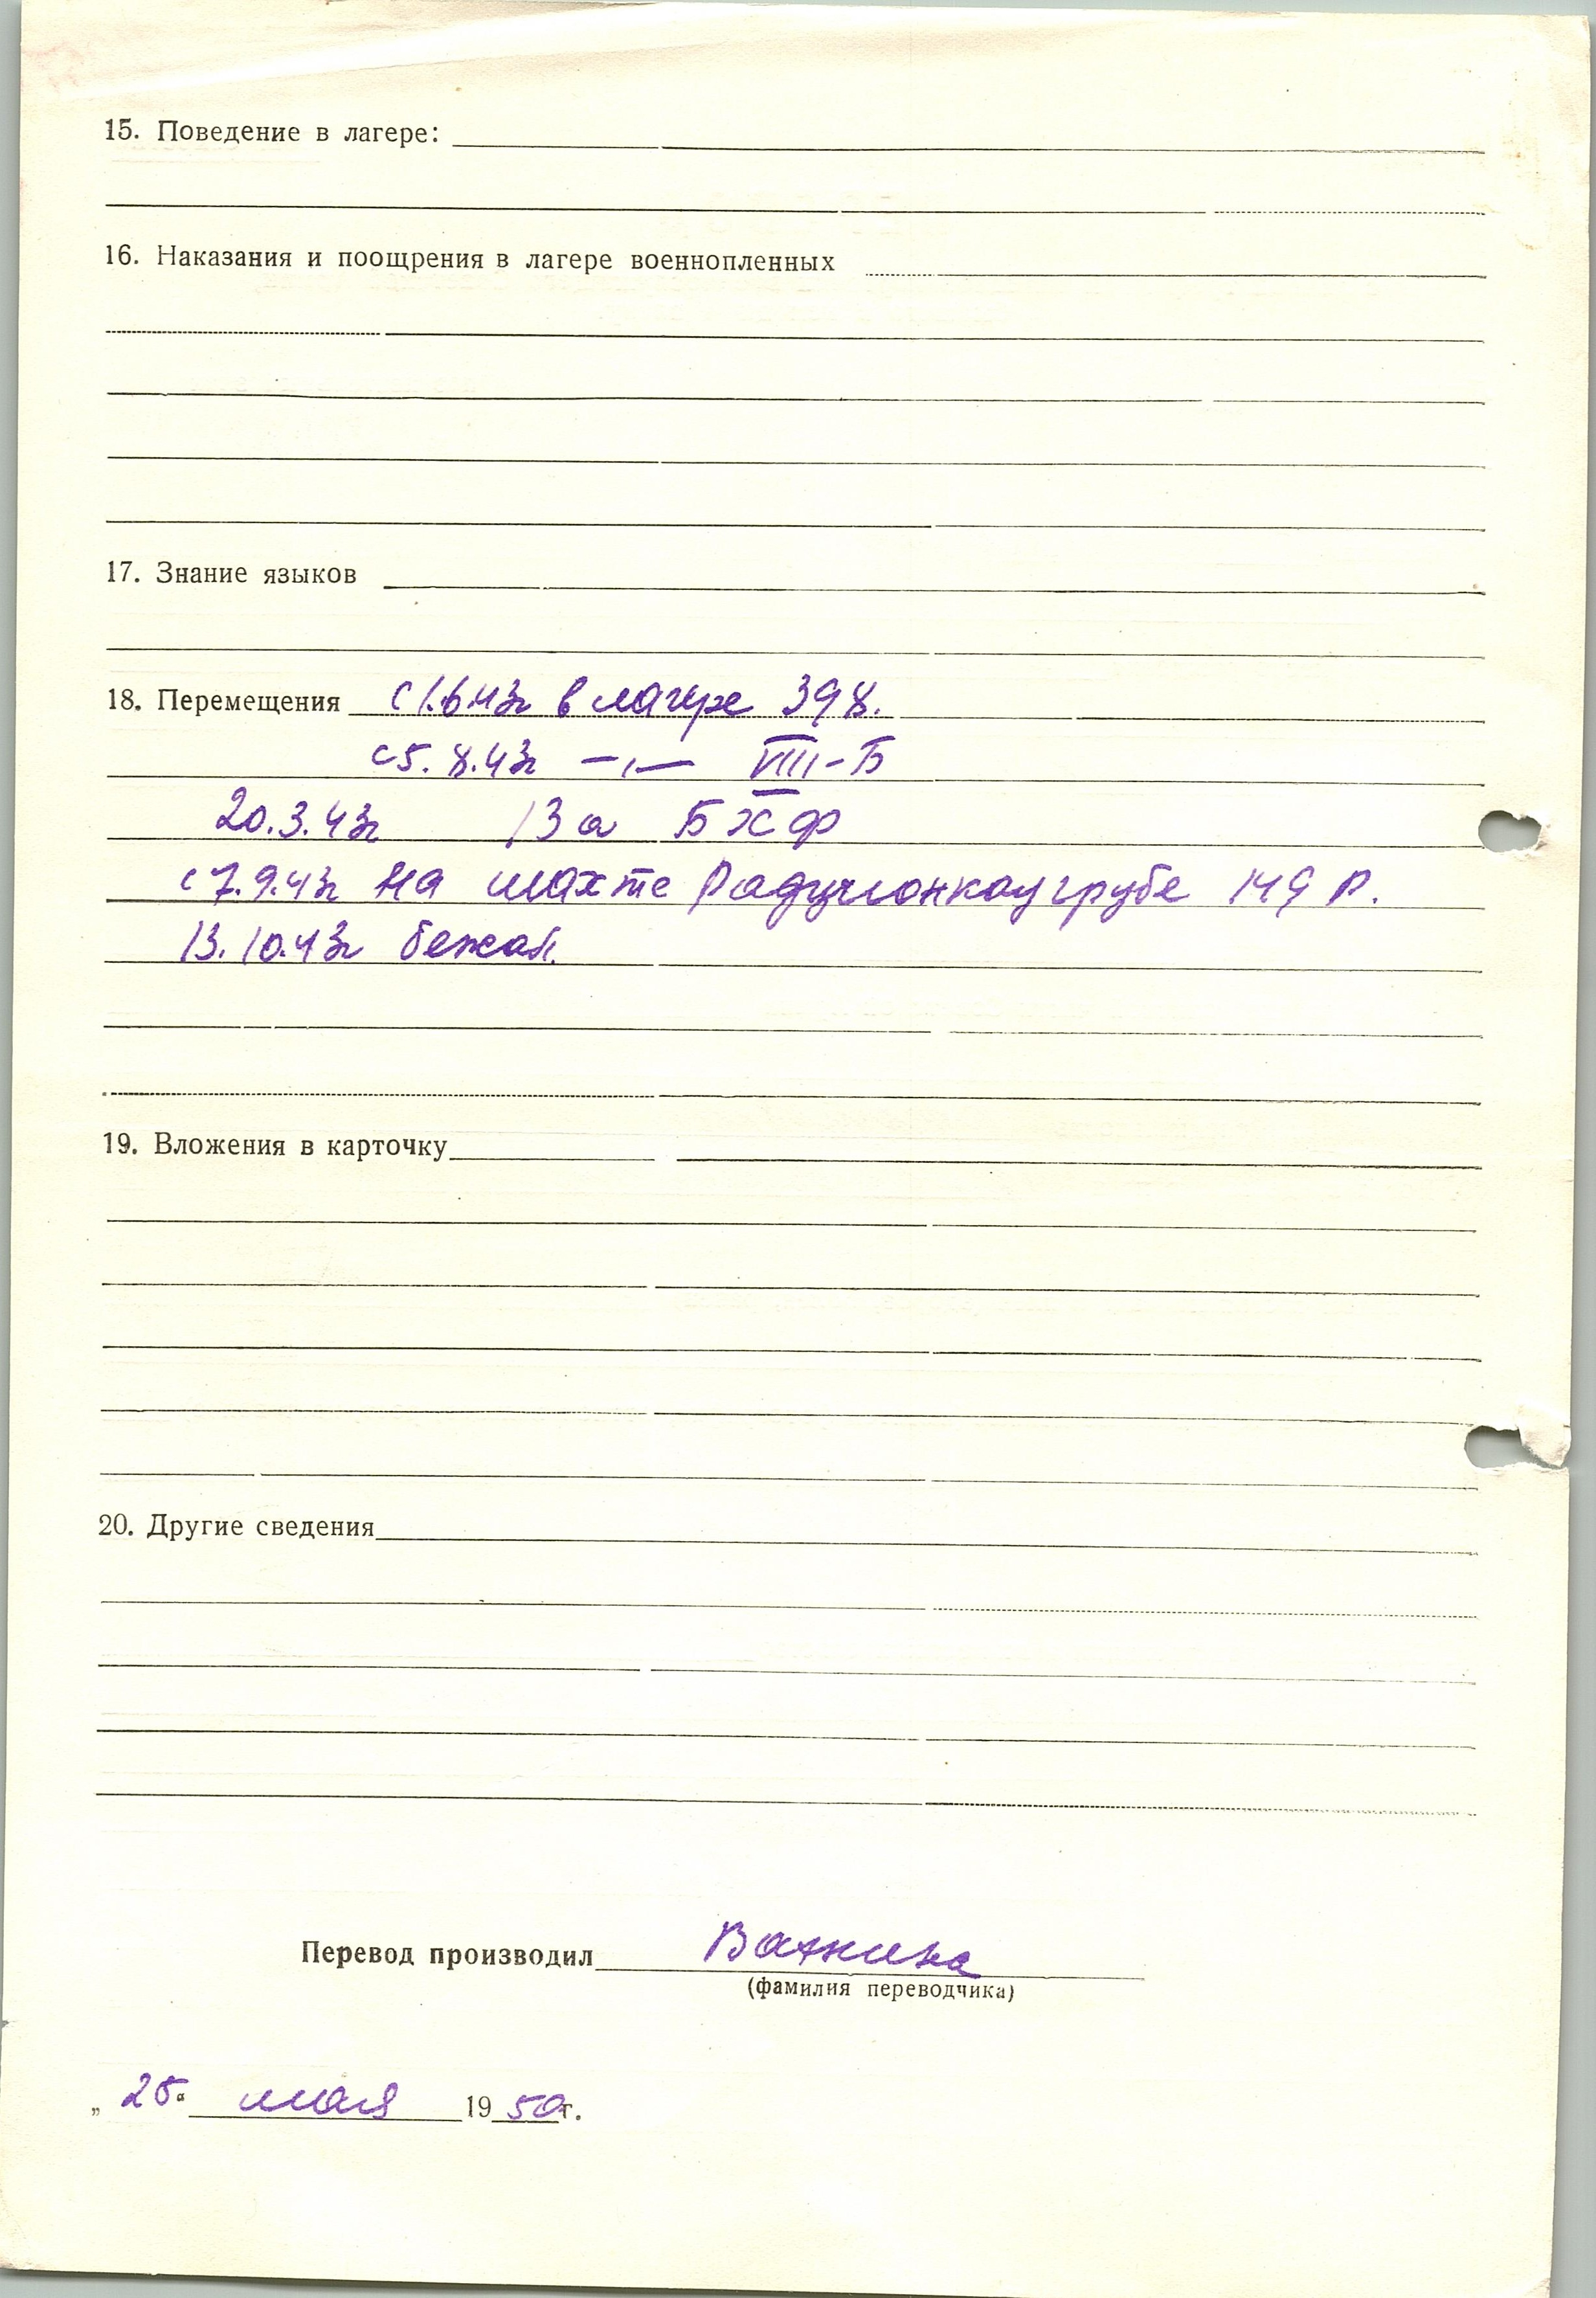 15. Поведение в лагере:
16. Наказания и поощрения в лагере военнопленных
17. Знание языков
18. Перемещения с 1.6.43г в лагере 398.
с 5.8.43г —„— VIII-Б
20.3.43г 13 а Б Х Ф
с 7.9.43г на шахте Радзионкаугрубе 149 Р.
13.10.43г бежал.
19. Вложения в карточку
20. Другие сведения
Перевод производил
(фамилия переводчика)
„25“ мая 1950г.